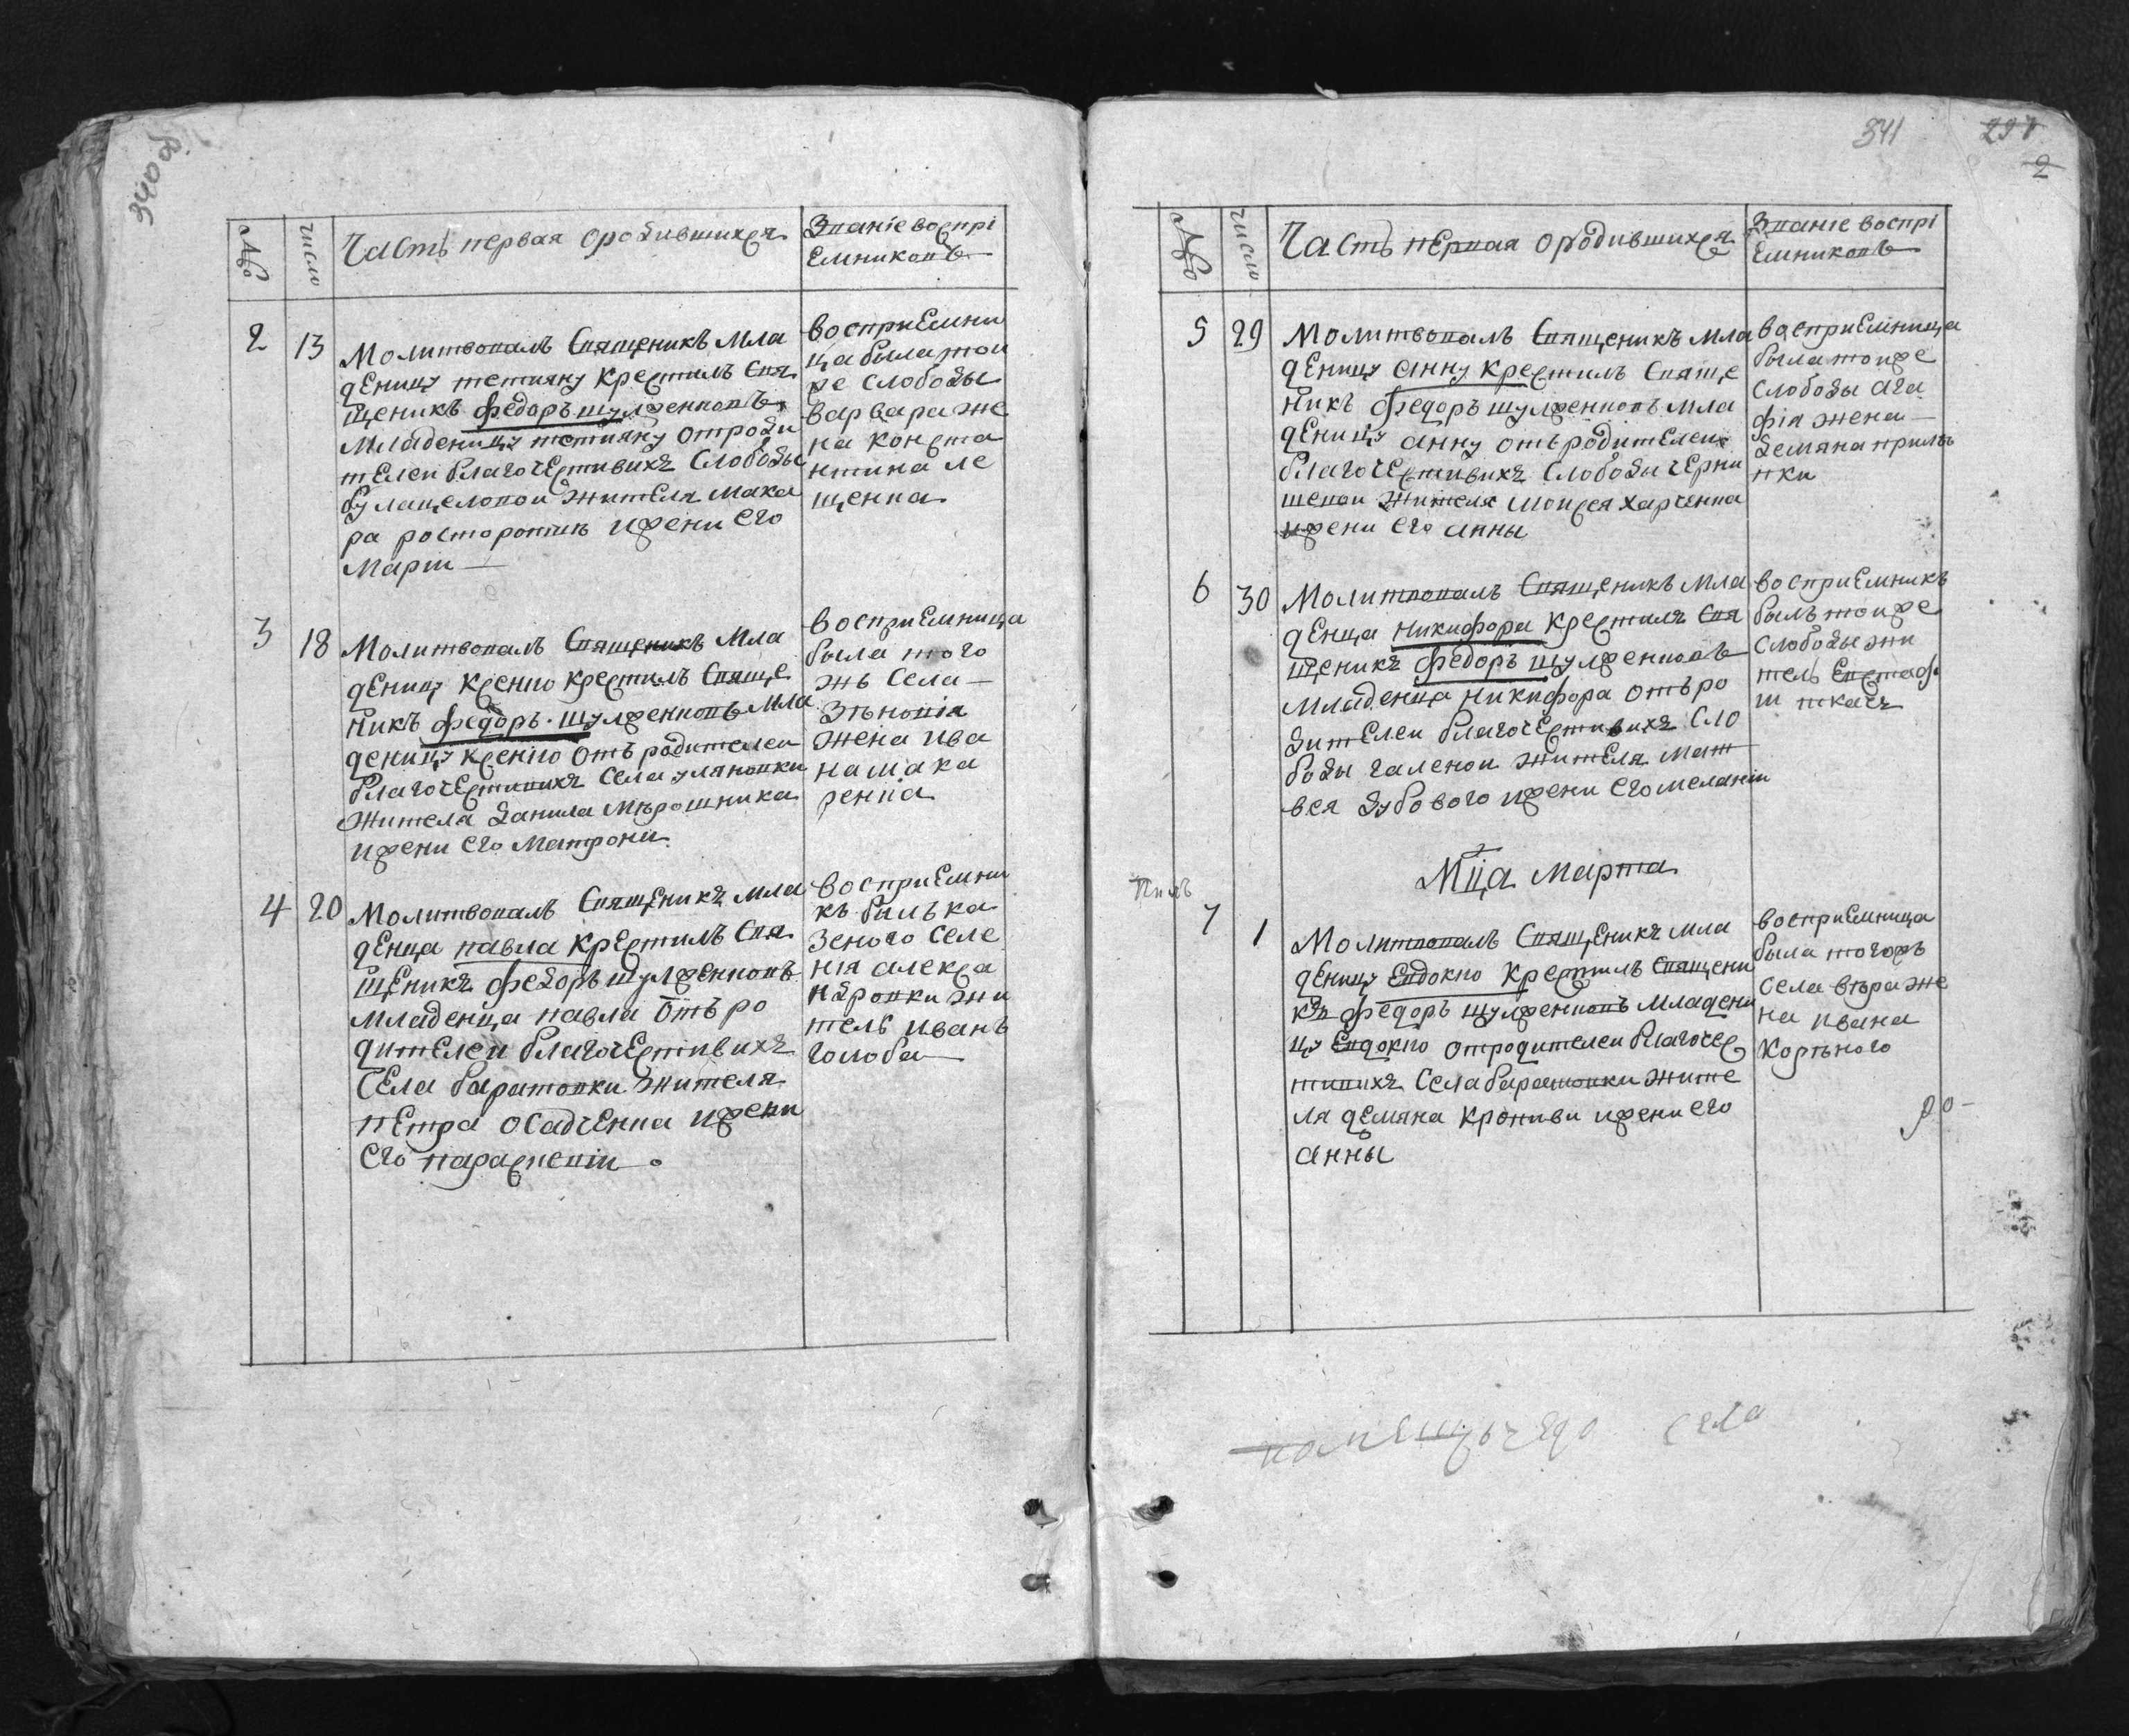 340 об.
№ число Часть первая ородившихся Званіе воспрі
емниковъ
2 13 Молитвовалъ Священикъ Мла
деницу тетияну крестилъ Свя
щеникъ федоръ шулженковъ
Младеницу тетияну отроди
телей благочестивихъ Слободы
булацеловой жителя Мака
ра росторопии ижени его
Маріи
восприемни
ца была той
же слободы
варвара же
на конста
нтина ле
щенка
3 18 Молитвовалъ Священикъ Мла
деницу ксенію крестилъ Свяще
никъ федоръ шулженковъ мла
деницу ксенію отъ родителей
благочестивихъ села уляновки
жителя данила Мѣрошника
ижени его Матрони
восприемница
была того
жъ села
Зѣновія
жена ива
на мака
ренка
4 20 Молитвовалъ Священикъ мла
денца павла крестилъ Свя
щеникъ федоръ шулженковъ
младенца павла отъ ро
дителей благочестивихъ
села баратовки жителя
петра осадченка ижени
его параскевіи
восприемни
къ билъ ка
зеного селе
нія алекса
ндровки жи
тель иванъ
голоба
341 297
2
№ число Часть первая ородившихся Званіе воспрі
емниковъ
5 29 Молитвовалъ Священикъ мла
деницу анну крестилъ Свяще
никъ федоръ шулженковъ мла
деницу анну отъ родителей
благочестивихъ слободы черни
шевой жителя моисея харченка
ижени его анны
восприемница
была тойже
слободы ага
фія жена
демяна прилѣ
пки
6 30 Молитвовалъ Священикъ мла
денца никифора крестилъ Свя
щеникъ федоръ шулженковъ
младенца никифора отъ ро
дителей благочестивихъ сло
боды галеной жителя мат
вея дубового ижени его меланіи
восприемникъ
былъ тойже
слободы жи
тель Евстаф
ій ткачъ
Мца Марта
7 1 Молитвовалъ Священикъ мла
деницу Евдокію крестилъ Священи
къ федоръ шулженковъ младени
цу Евдокію отродителей благочес
тивихъ села баратовки жите
ля демяна кропиви ижени его
анны
восприемница
была тогожъ
села вѣра же
на ивана
корѣного
помещичего села